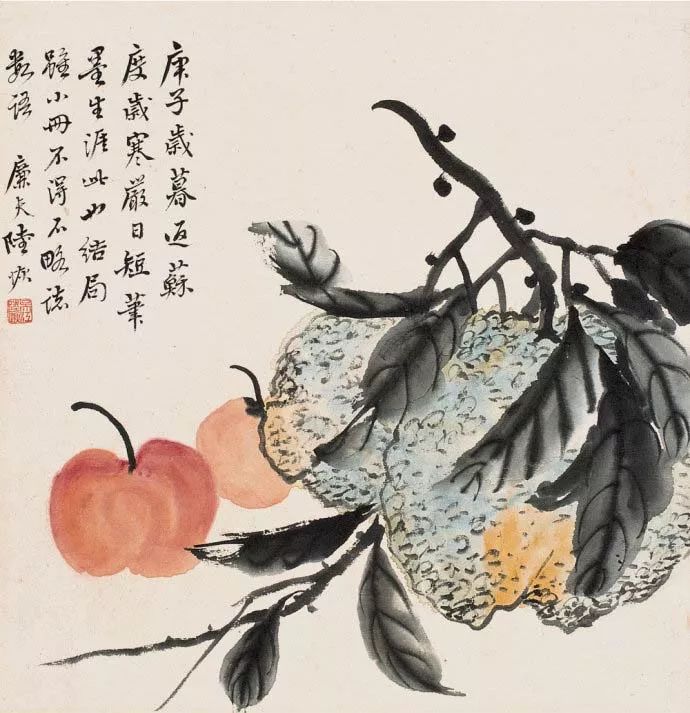 庚子歲暮返蘇
度歲寒嚴日短筆
墨生涯此為結局
雖小冊不得不略誌
數語 廉夫陸恢